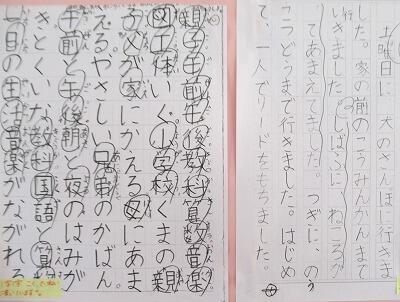 土曜日に 犬のさんぽに行きま
した。家の前のこうみんかんまで
行きました。しばふに ねころがっ
てあまえてました。つぎに、のう
こつどうまで行きました。はじめ
て、一人でリードをもちました。
親子午前午後教科算数音楽
図工体いく小学校くまの親
子父が家にかえる母にあま
えるやさしい兄弟のかばん。
午前と午後朝と夜のはみが
きとくいな教科国語と算数
毎日の生活音楽がながれる